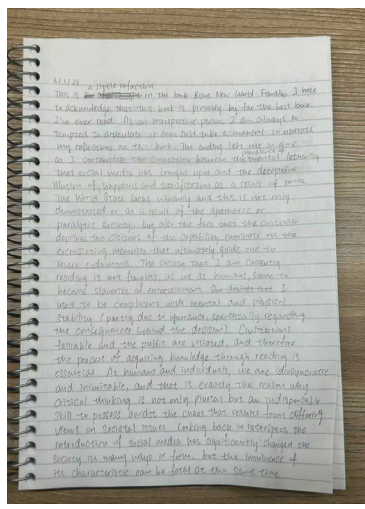 a little reflection
This is in the book Brave New World. Frankly, I have
to acknowledge that this book is probably by far the best book
I've ever read. As an introspective person, I am always so
tempted to articulate or even just take a moment to
my reflections on this book. The ending left me in awe
as I contemplate the connection between the prevalence of mental lethargy
that social media has brought upon and the deceptive
illusion of happiness and gratification as a result of soma.
The World State lacks vibrancy and this is not only
demonstrated as a result of the apathetic or
paralytic society, but also the fact that the
depriving the citizens of the capability ruminate on the
excruciating memories that ultimately guide one to
eudaimonia. The society that I am currently
residing is not flawless, as we as humans, seem to
become slaves of entertainment. I
used to be complacent with mental and physical
stability (partly due to ignorance, specifically regarding
the consequences behind the decision). Civilization is
and the public are vitiated, and therefore
the process of acquiring knowledge through reading is
essential. As humans and individuals, we are idiosyncratic
and inimitable, and that is exactly the reason why
critical thinking is not only pivotal but an indispensable
skill to possess amidst the chaos that results from differing
views on societal issues. Looking back in retrospect, the
introduction of social media has significantly changed the
society in many ways or form, but the
its characteristic can be fatal at the same time